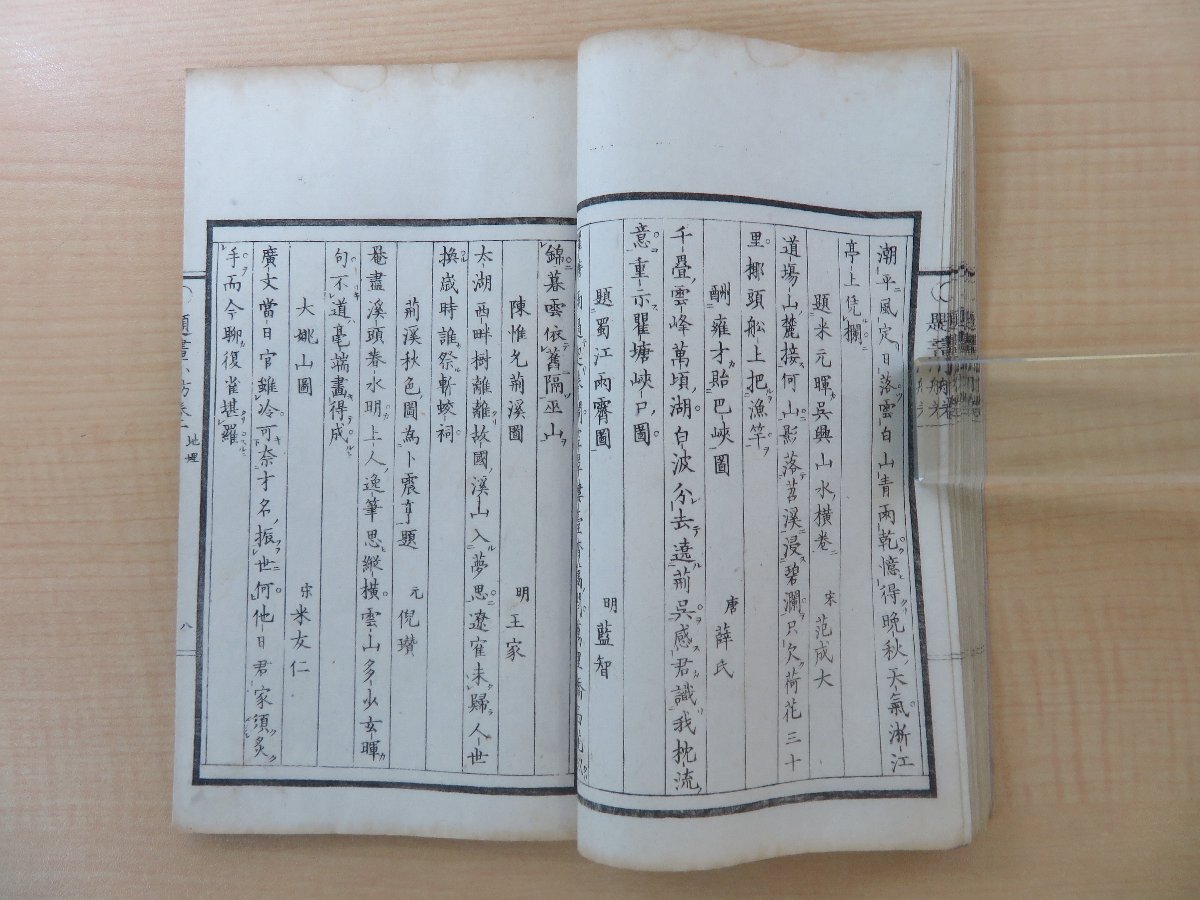 潮平風定日落雲白山青雨乾憶得晩秋天氣浙江
亭上凭欄
題米元暉吳興山水横卷 宋 范成大
道場山麓接何山影落苕溪浸碧瀾只欠荷花三十
里挪頭船上把漁竿
酬雍才貽巴峽圖 唐 薛氏
千疊雲峰萬頃湖白波分去遶荊吳感君識我枕流
意重示瞿塘峽口圖
題蜀江雨霽圖 明 藍智
錦暮雲依舊隔巫山
陳惟允荊溪圖 明 王家
太湖西畔樹離離故國溪山入夢思遼寉未歸人世
換歳時誰祭斬蛟祠
荊溪秋色圖為卜震亨題 元 倪瓚
罨畫溪頭春水明上人逸筆思縱横雲山多少玄暉
句不道毫端畫得成
大姚山圖 宋 米友仁
廣文當日官雖冷可奈才名振世何他日君家須炙
手而今聊復雀堪羅
地理
八